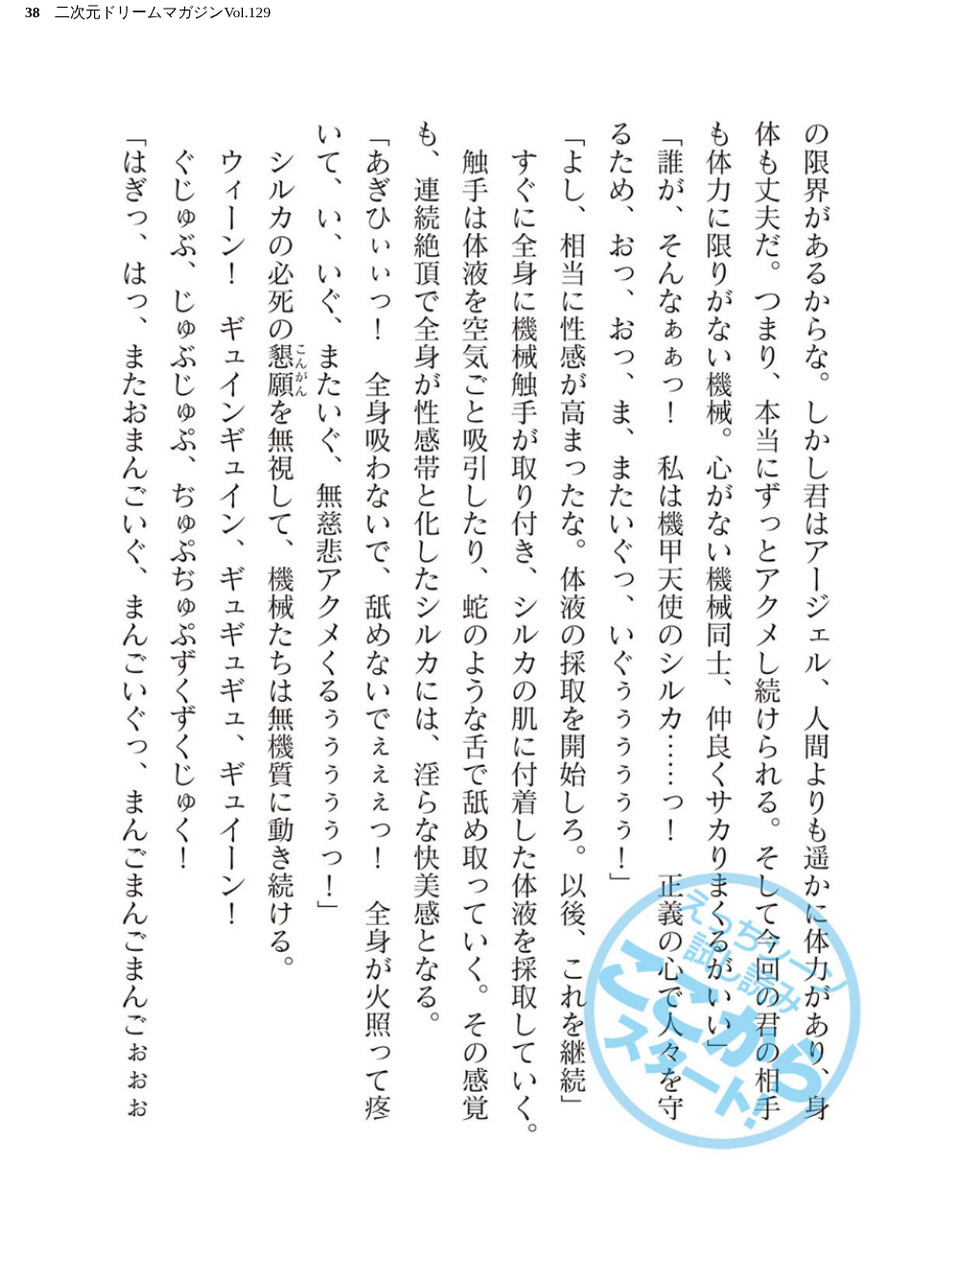 38 二次元ドリームマガジンVol.129
の限界があるからな。しかし君はアージェル、人間よりも遥かに体力があり、身
体も丈夫だ。つまり、本当にずっとアクメし続けられる。そして今回の君の相手
も体力に限りがない機械。心がない機械同士、仲良くサカりまくるがいい」
「誰が、そんなぁぁっ！　私は機甲天使のシルカ……っ！　正義の心で人々を守
るため、おっ、おっ、ま、またいぐっ、いぐぅぅぅぅぅ！」
「よし、相当に性感が高まったな。体液の採取を開始しろ。以後、これを継続」
　すぐに全身に機械触手が取り付き、シルカの肌に付着した体液を採取していく。
　触手は体液を空気ごと吸引したり、蛇のような舌で舐め取っていく。その感覚
も、連続絶頂で全身が性感帯と化したシルカには、淫らな快美感となる。
「あぎひぃぃっ！　全身吸わないで、舐めないでぇぇぇっ！　全身が火照って疼
いて、い、いぐ、またいぐ、無慈悲アクメくるぅぅぅぅぅっ！」
　シルカの必死の懇願を無視して、機械たちは無機質に動き続ける。
こんがん
　ウィーン！　ギュインギュイン、ギュギュギュ、ギュイーン！
　ぐじゅぶ、じゅぶじゅぷ、ぢゅぷぢゅぷずくずくじゅく！
「はぎっ、はっ、またおまんごいぐ、まんごいぐっ、まんごまんごまんごぉぉぉ
えっちシーン
試し読み
ここから
スタート！